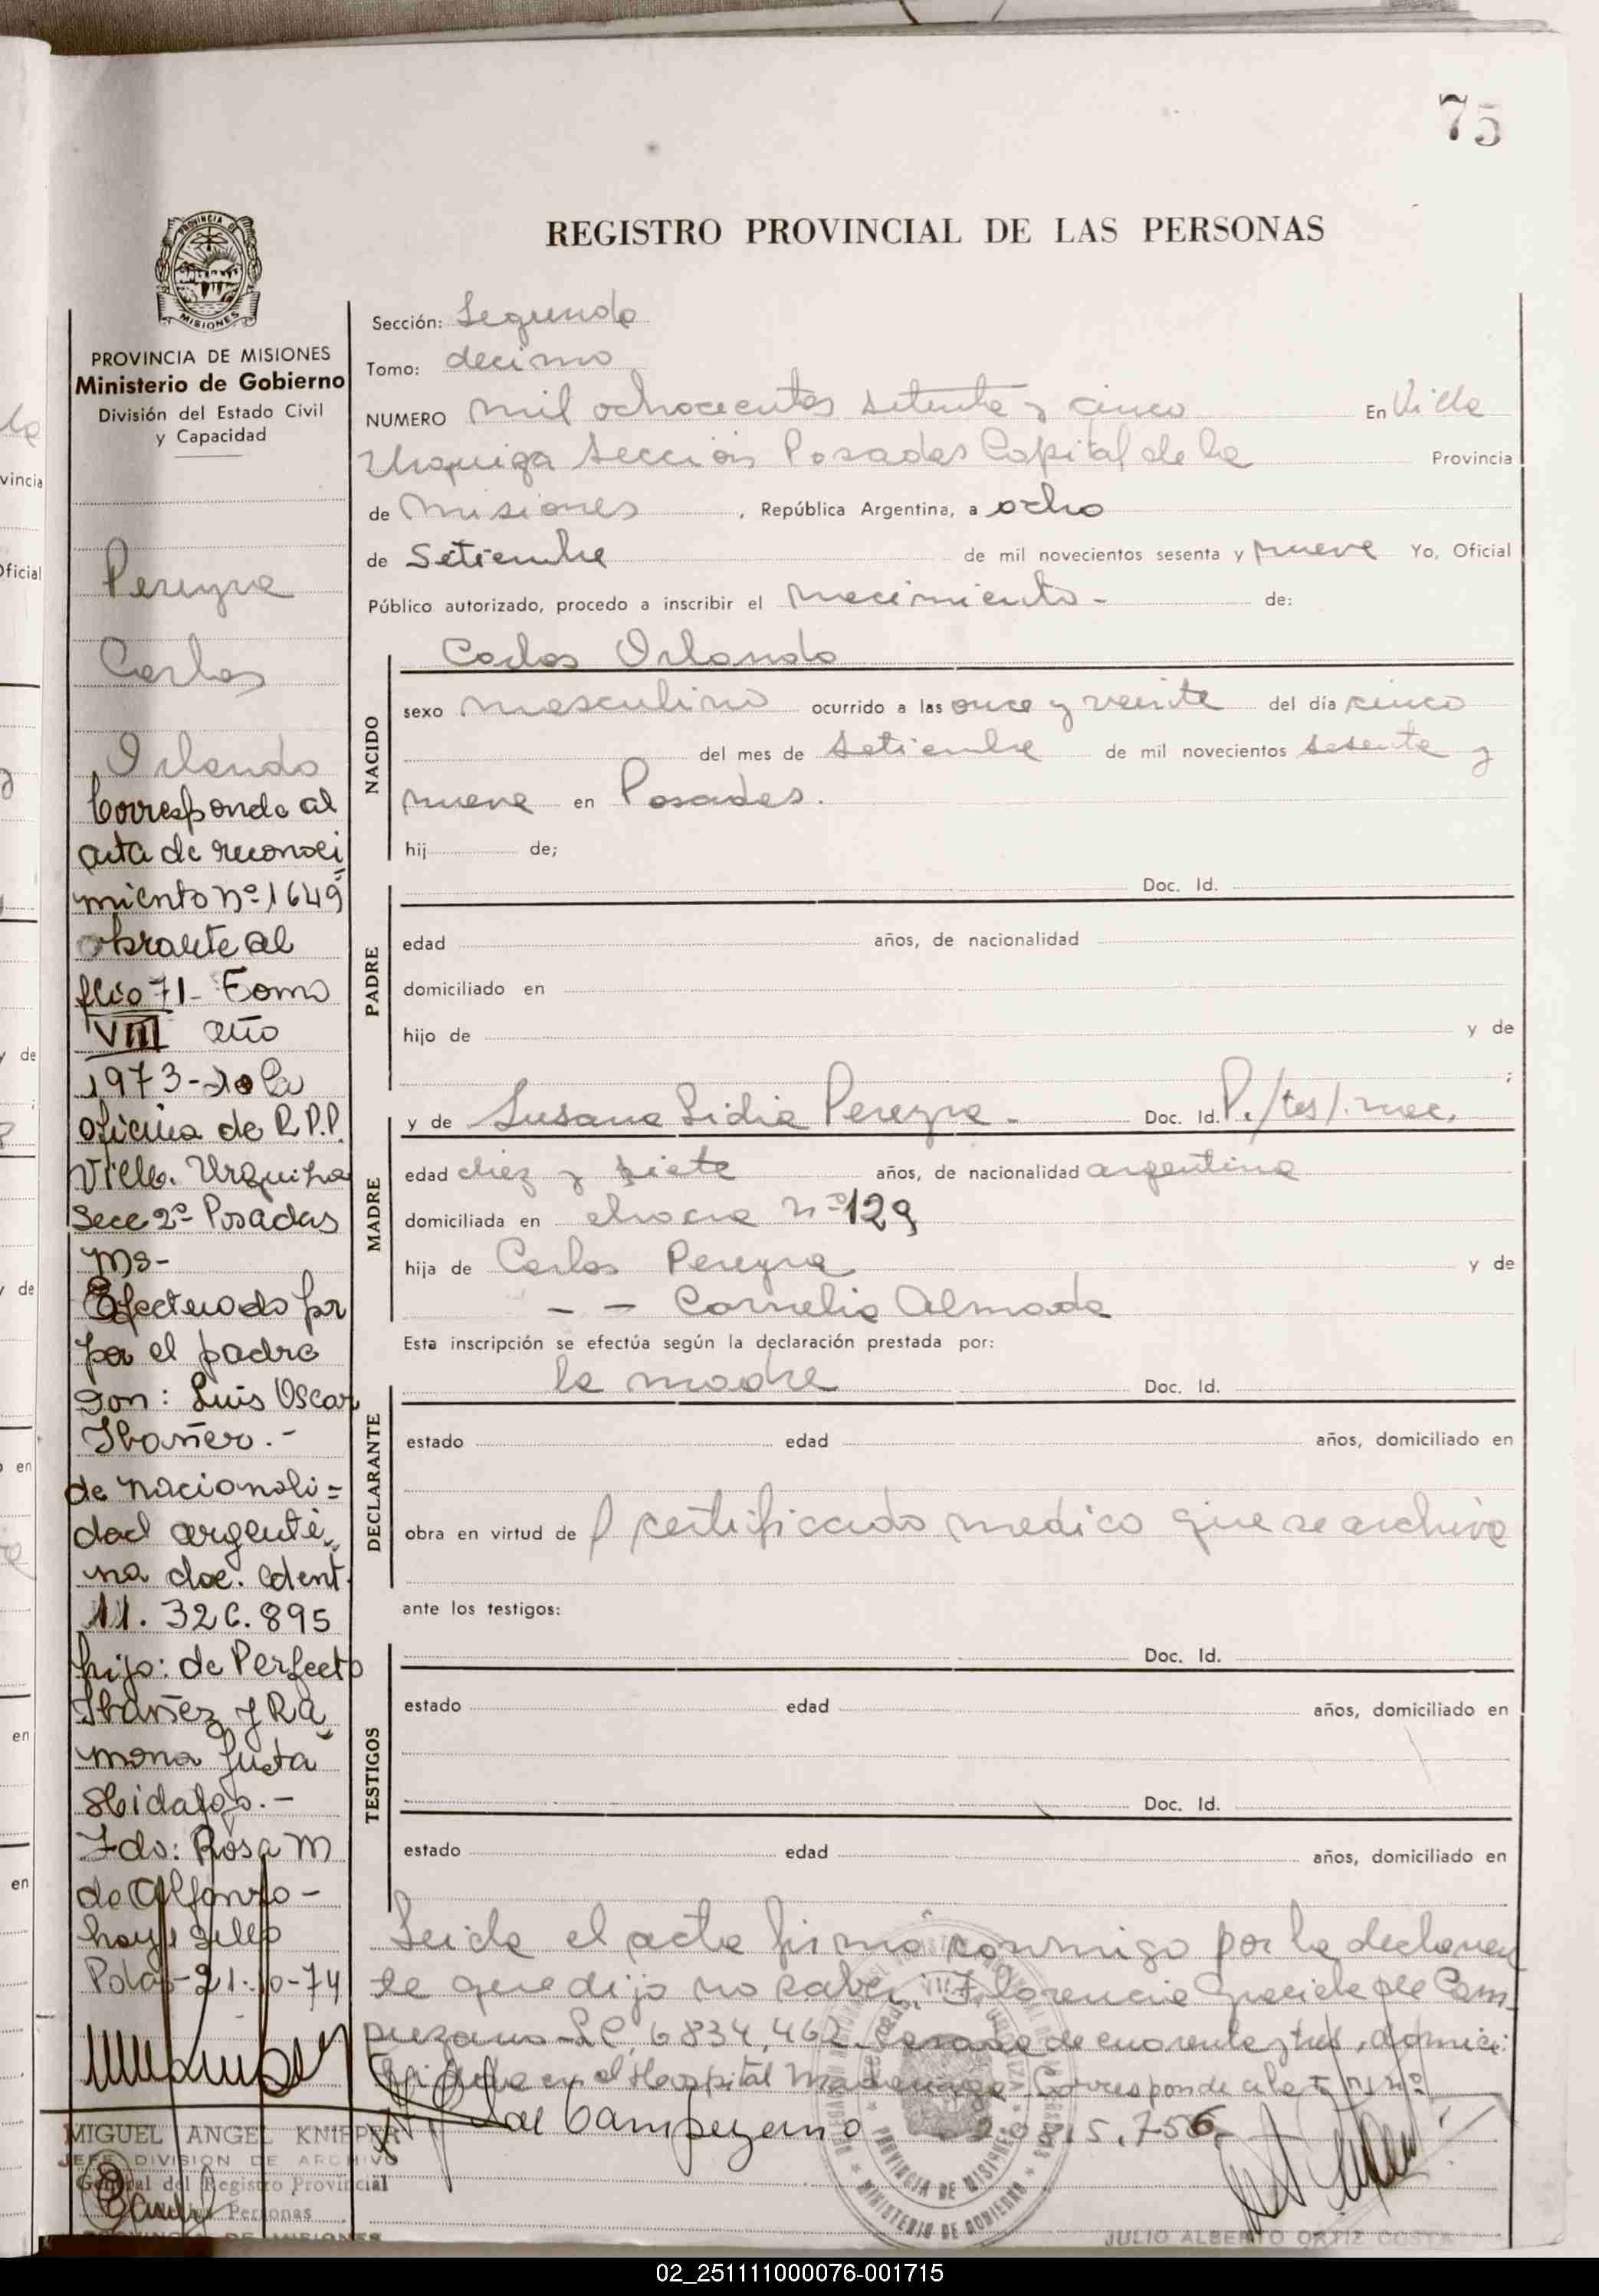 75
REGISTRO PROVINCIAL DE LAS PERSONAS
PROVINCIA DE
MISIONES
PROVINCIA DE MISIONES
Ministerio de Gobierno
División del Estado Civil
y Capacidad
Pereyra
Carlos
Orlando
Corresponde al
acta de reconoci
miento nº 1649
obrante al
flio 71- Tomo
VIII año
1973- de la
oficina de R.P.P.
Villa. Urquiza
Secc 2º Posadas
Ms-
Efectuado por
por el padre
Don: Luis Oscar
Ibañez.-
de nacionali=
dad argenti
na doc. ident.
11.326.895
hijo: de Perfecto
Ibañez y Ra
mona Justa
Hidalgo.-
Fdo: Rosa M
de Alfonso-
hay sello
Pdas-21-10-74
MIGUEL ANGEL KNIEPPER
JEFE DIVISION DE ARCHIVO
General del Registro Provincial
de las Personas
PROVINCIA DE MISIONES
Sección: Segunda
Tomo: decimo
NUMERO mil ochocientos setenta y cinco En Villa
Urquiza Sección Posadas Capital de la Provincia
de Misiones, República Argentina, a ocho
de Setiembre de mil novecientos sesenta y nueve Yo, Oficial
Público autorizado, procedo a inscribir el nacimiento- de:
Carlos Orlando
NACIDO
sexo masculino ocurrido a las once y veinte del día cinco
del mes de setiembre de mil novecientos sesenta y
nueve en Posadas.
hij de;
PADRE
Doc. Id.
edad años, de nacionalidad
domiciliado en
hijo de y de
;
MADRE
y de Susana Lidia Pereyra- Doc. Id. P./tes/. nac.
edad diez y siete años, de nacionalidad argentina
domiciliada en chacra nº 129
hija de Carlos Pereyra y de
- - Cornelia Almada
Esta inscripción se efectúa según la declaración prestada por:
DECLARANTE
la madre Doc. Id.
estado edad años, domiciliado en
obra en virtud de l certificado medico que se archiva
ante los testigos:
TESTIGOS
Doc. Id.
estado edad años, domiciliado en
Doc. Id.
estado edad años, domiciliado en
Leida el acta firma conmigo por la declaran
te que dijo no saber, Florencia Graciela de Cam
puzano LC, 6834,462 casada de cuarenta y tres, domici
liada en el Hospital Madariaga Corresponde a la nº
de Campuzano 20815.756
PROVINCIA DE MISIONES
MINISTERIO DE GOBIERNO
JULIO ALBERTO ORTIZ COSTA
02_251111000076-001715